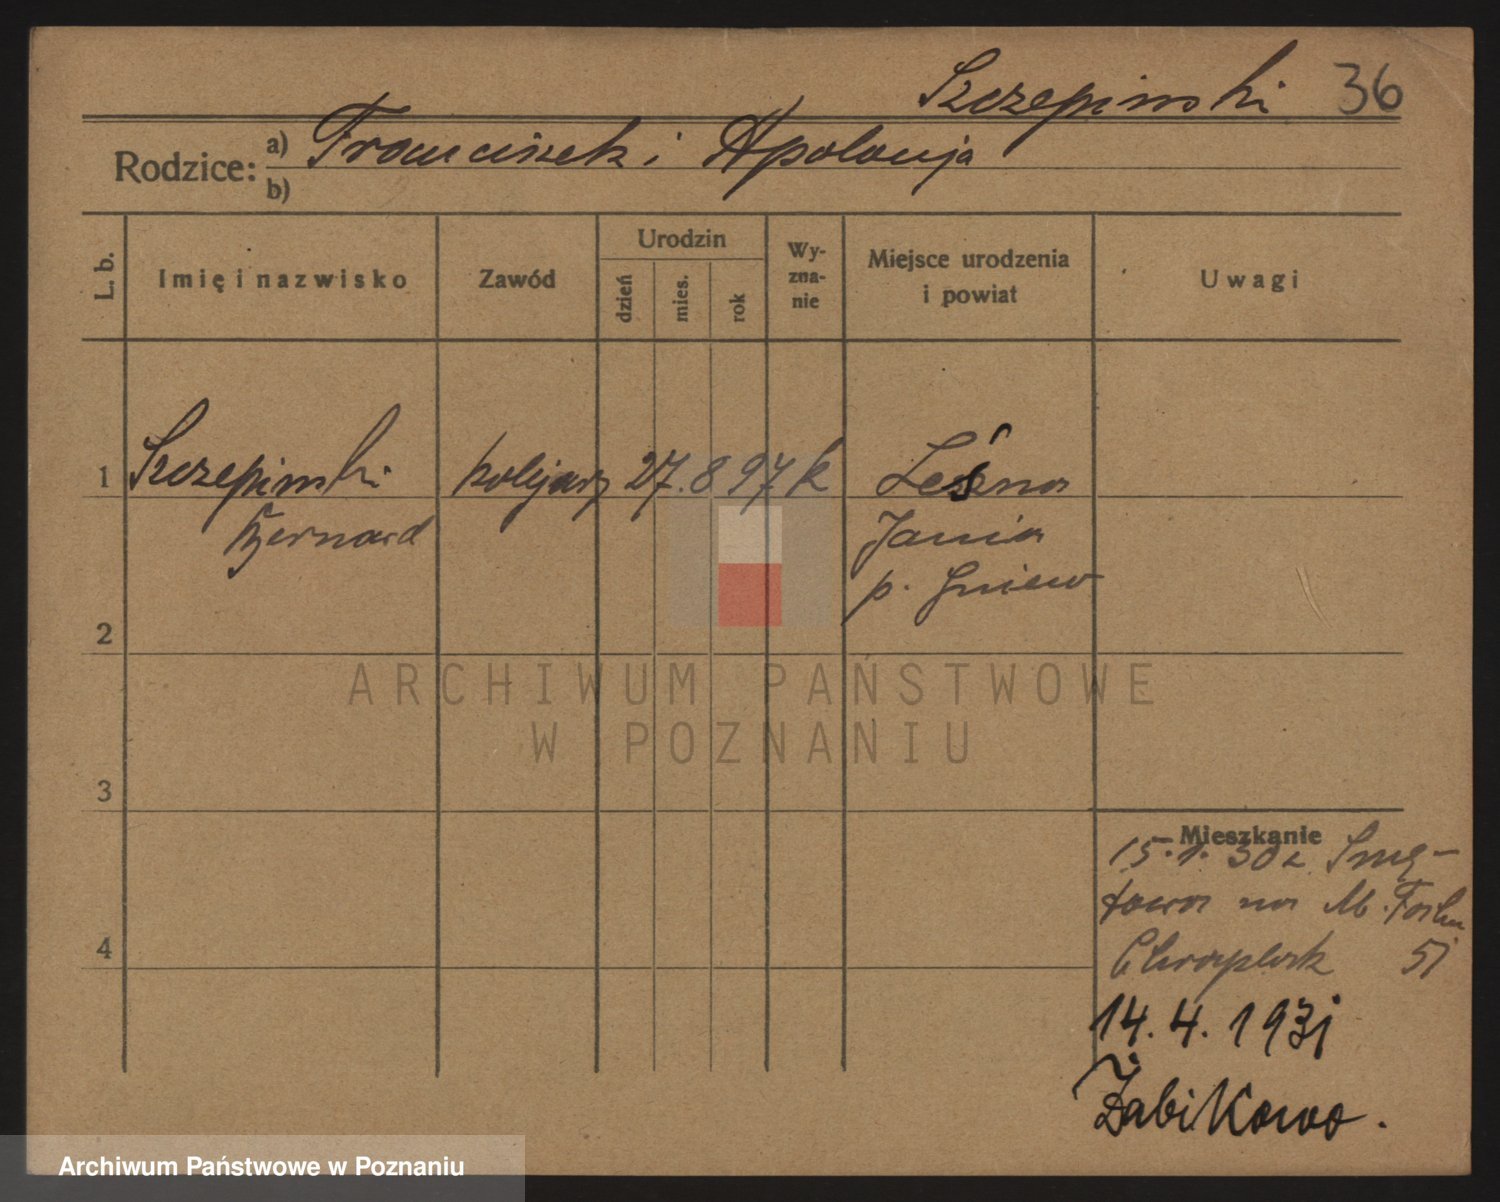 Szczepinski 36
Rodzice: a) Franciszek i Apolonja
b)
L. b. Imię i nazwisko Zawód Urodzin dzień mies. rok Wy-zna-nie Miejsce urodzenia i powiat Uwagi
1 Szczepinski kolejarz 27. 8 97 k Leśna
Bernard Jania
p. Gniew
2
ARCHIWUM PAŃSTWOWE
W POZNANIU
3
Mieszkanie
15.1.30 z Smę-
towa na M.
4
51
14.4.1931
Żabikowo.
Archiwum Państwowe w Poznaniu